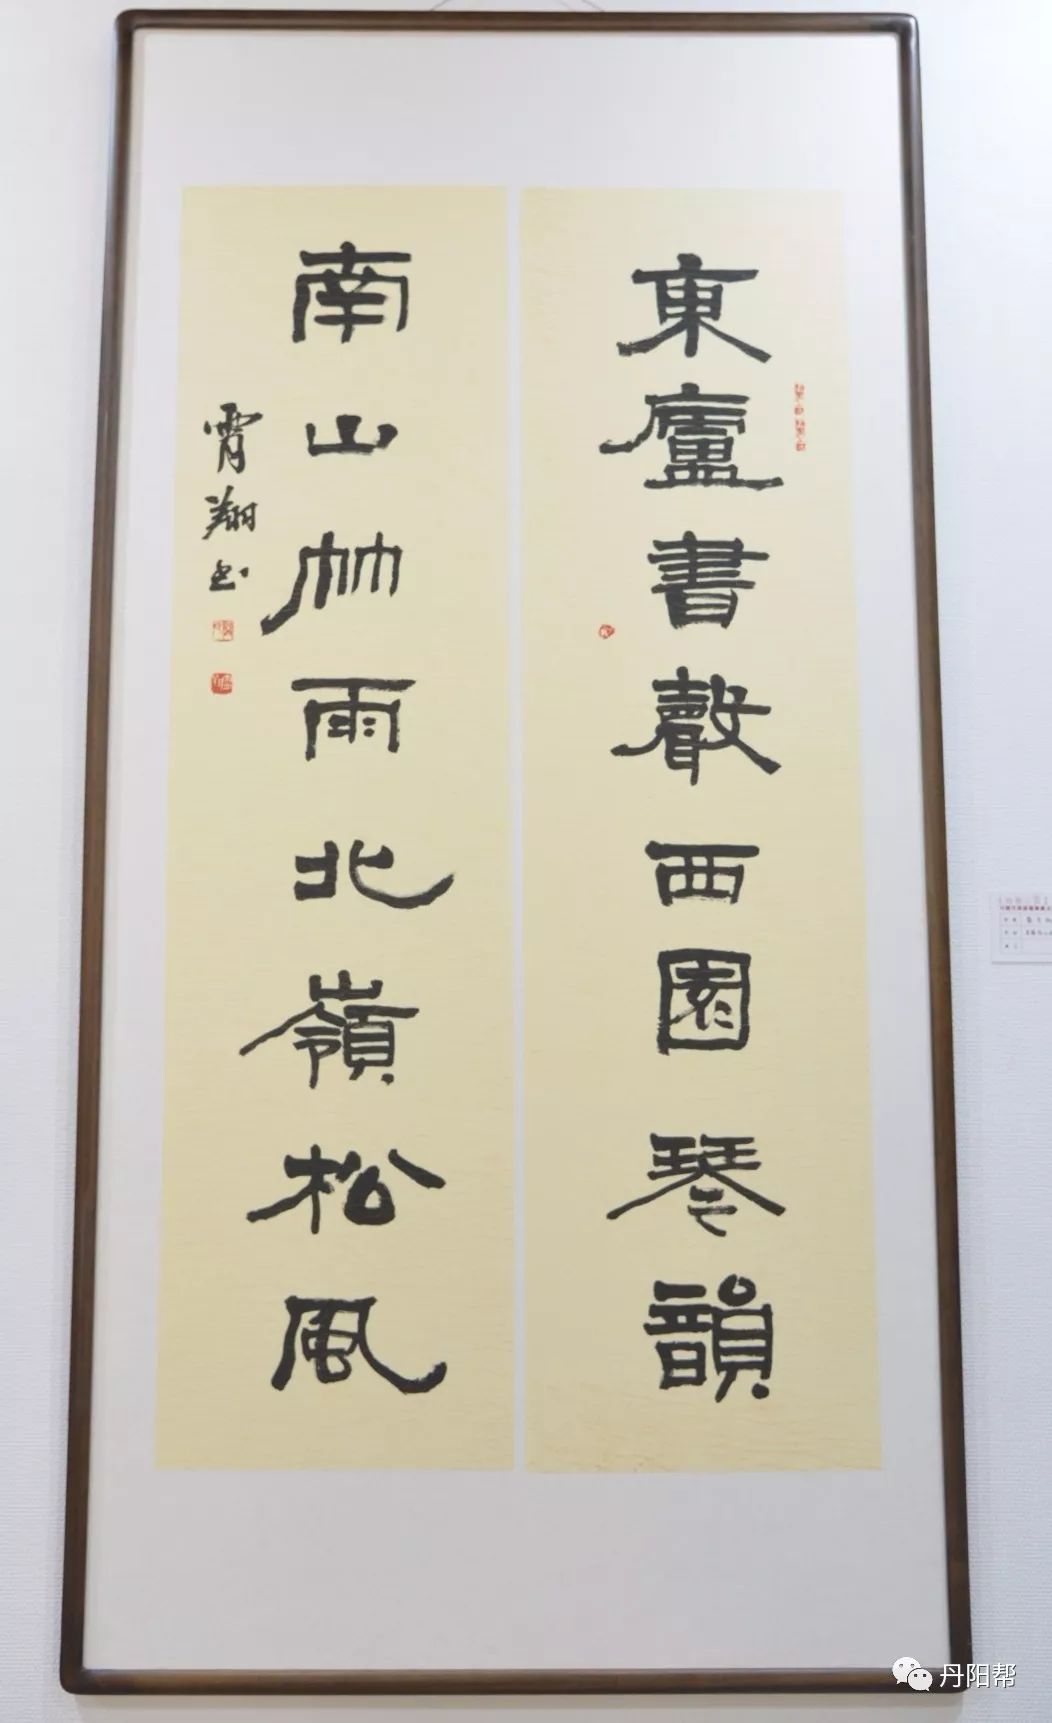 東廬書聲西園琴韻
南山竹雨北嶺松風
霄翔書
丹阳帮